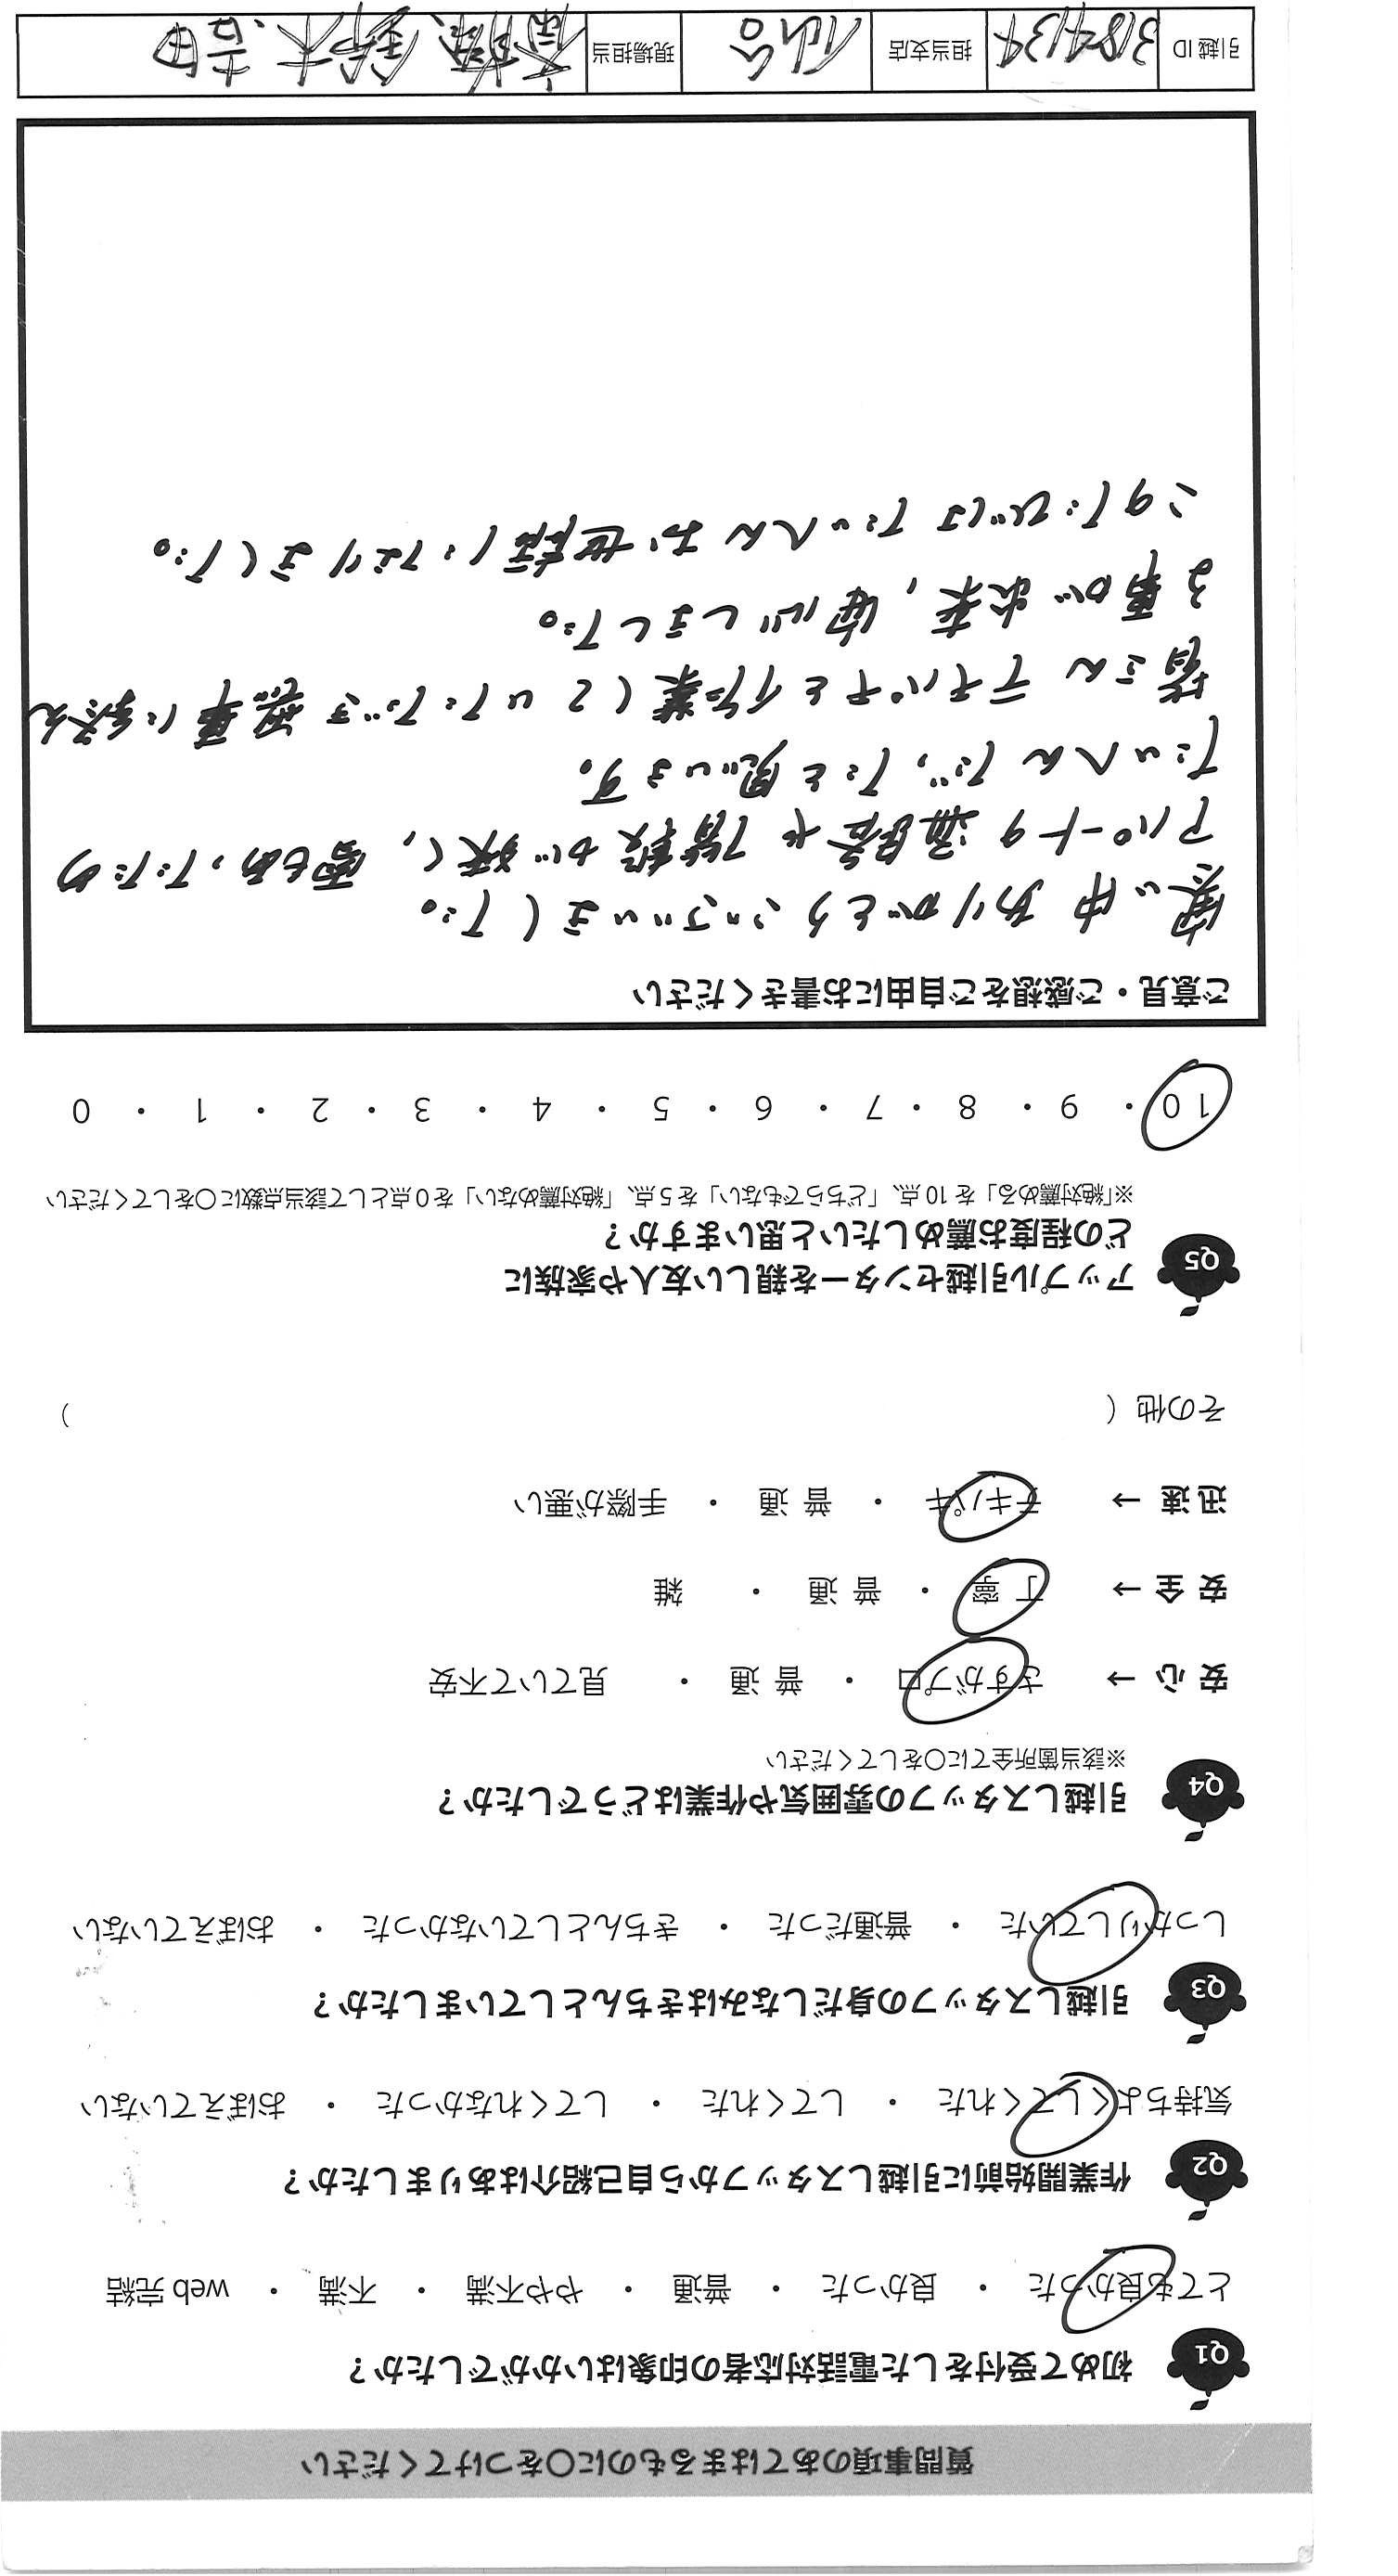 質問事項のあてはまるものに○をつけてください
Q1 初めて受付をした電話対応者の印象はいかがでしたか？
とても良かった ・ 良かった ・ 普通 ・ やや不満 ・ 不満 ・ web 完結
Q2 作業開始前に引越しスタッフから自己紹介はありましたか？
気持ちよくしてくれた ・ してくれた ・ してくれなかった ・ おぼえていない
Q3 引越しスタッフの身だしなみはきちんとしていましたか？
しっかりしていた ・ 普通だった ・ きちんとしていなかった ・ おぼえていない
Q4 引越しスタッフの雰囲気や作業はどうでしたか？
※該当箇所全てに○をしてください
安 心 → さすがプロ ・ 普 通 ・ 見ていて不安
安 全 → 丁 寧 ・ 普 通 ・ 雑
迅 速 → テキパキ ・ 普 通 ・ 手際が悪い
その他 ( )
Q5 アップル引越センターを親しい友人や家族に
どの程度お薦めしたいと思いますか？
※「絶対薦める」を 10 点、「どちらでもない」を 5 点、「絶対薦めない」を 0 点として該当点数に○をしてください
10 ・ 9 ・ 8 ・ 7 ・ 6 ・ 5 ・ 4 ・ 3 ・ 2 ・ 1 ・ 0
ご意見・ご感想をご自由にお書きください
寒い中 ありがとうございました。
アパートの通路や階段が狭く、雪もあったため
たいへんだったと思います。
皆さん テキパキと作業していただき無事に終え
る事が出来、安心しました。
このたびは たいへん お世話になりました。
引越 ID 3184134 担当支店 仙台 現場担当 高橋、鈴木、吉田